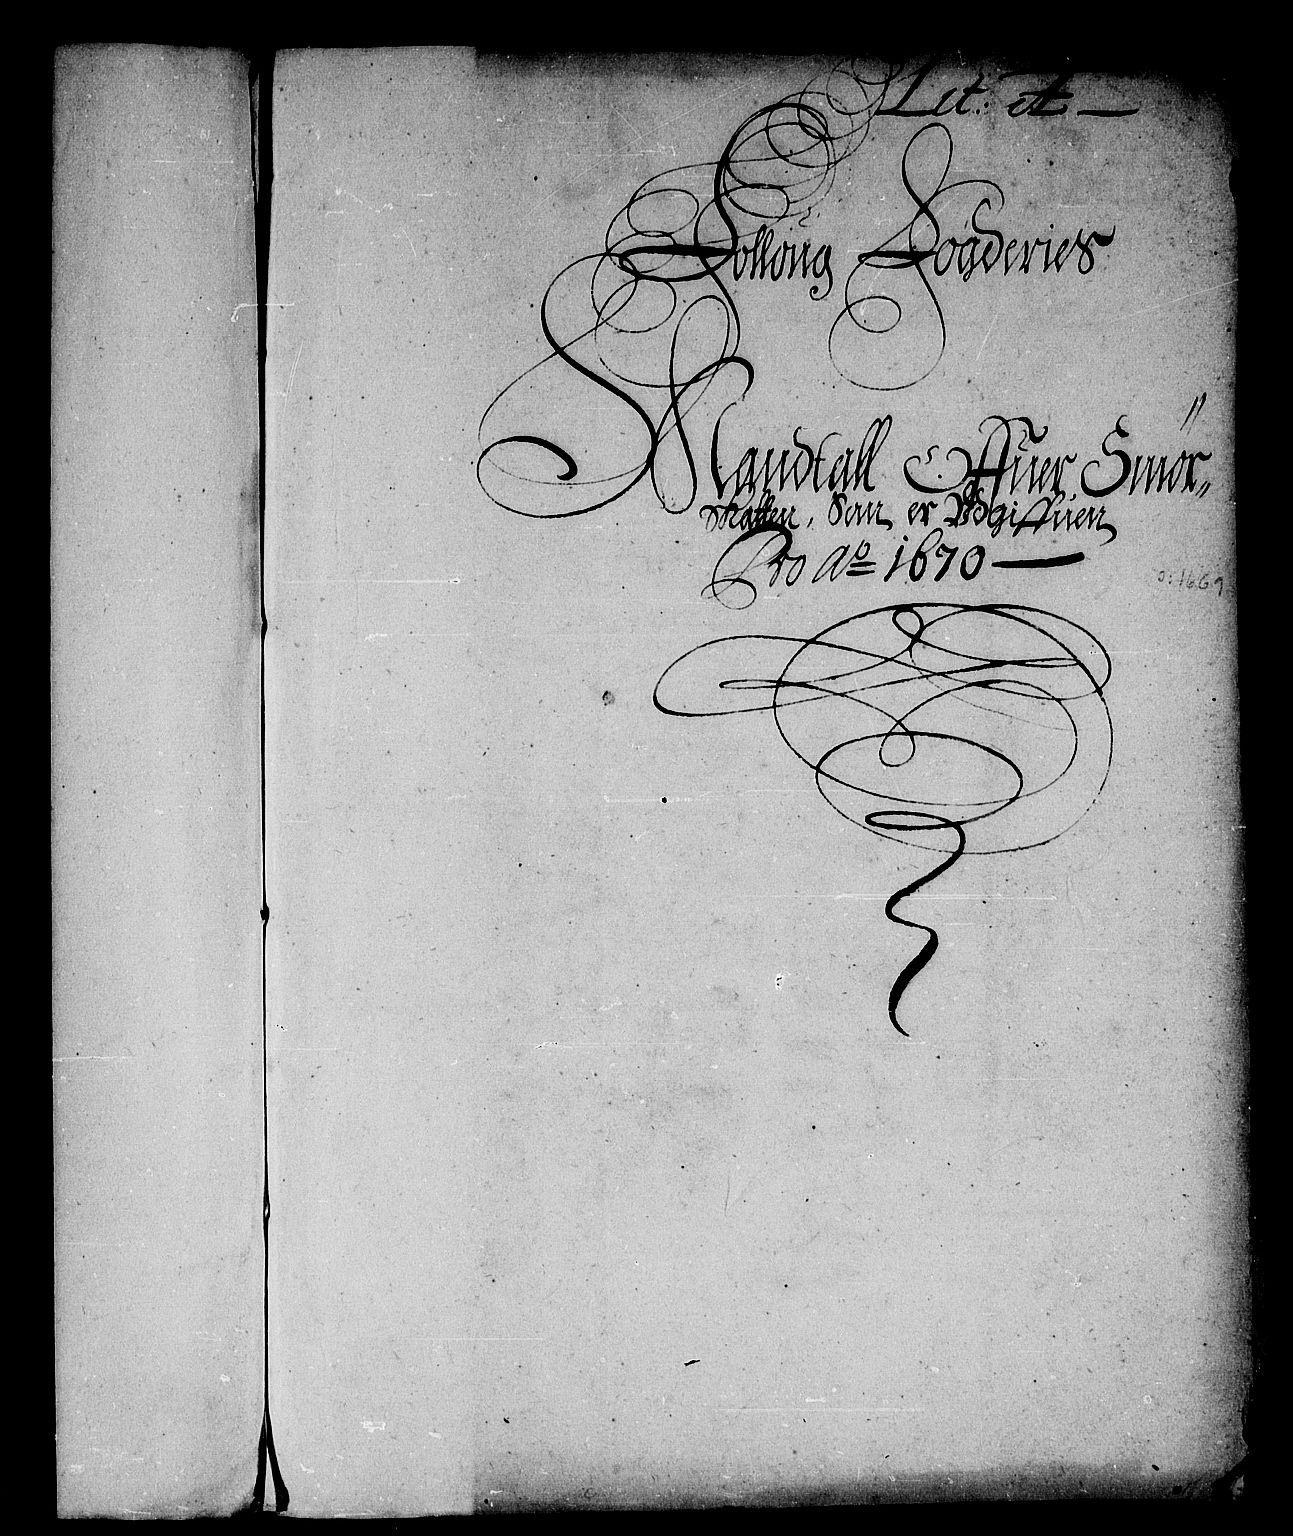 Lit: A
Folloug Fogderies
Mandtall Offuer Smör„
skatten, Som er Vdgiffuen
Pro Ao 1670
o: 1669